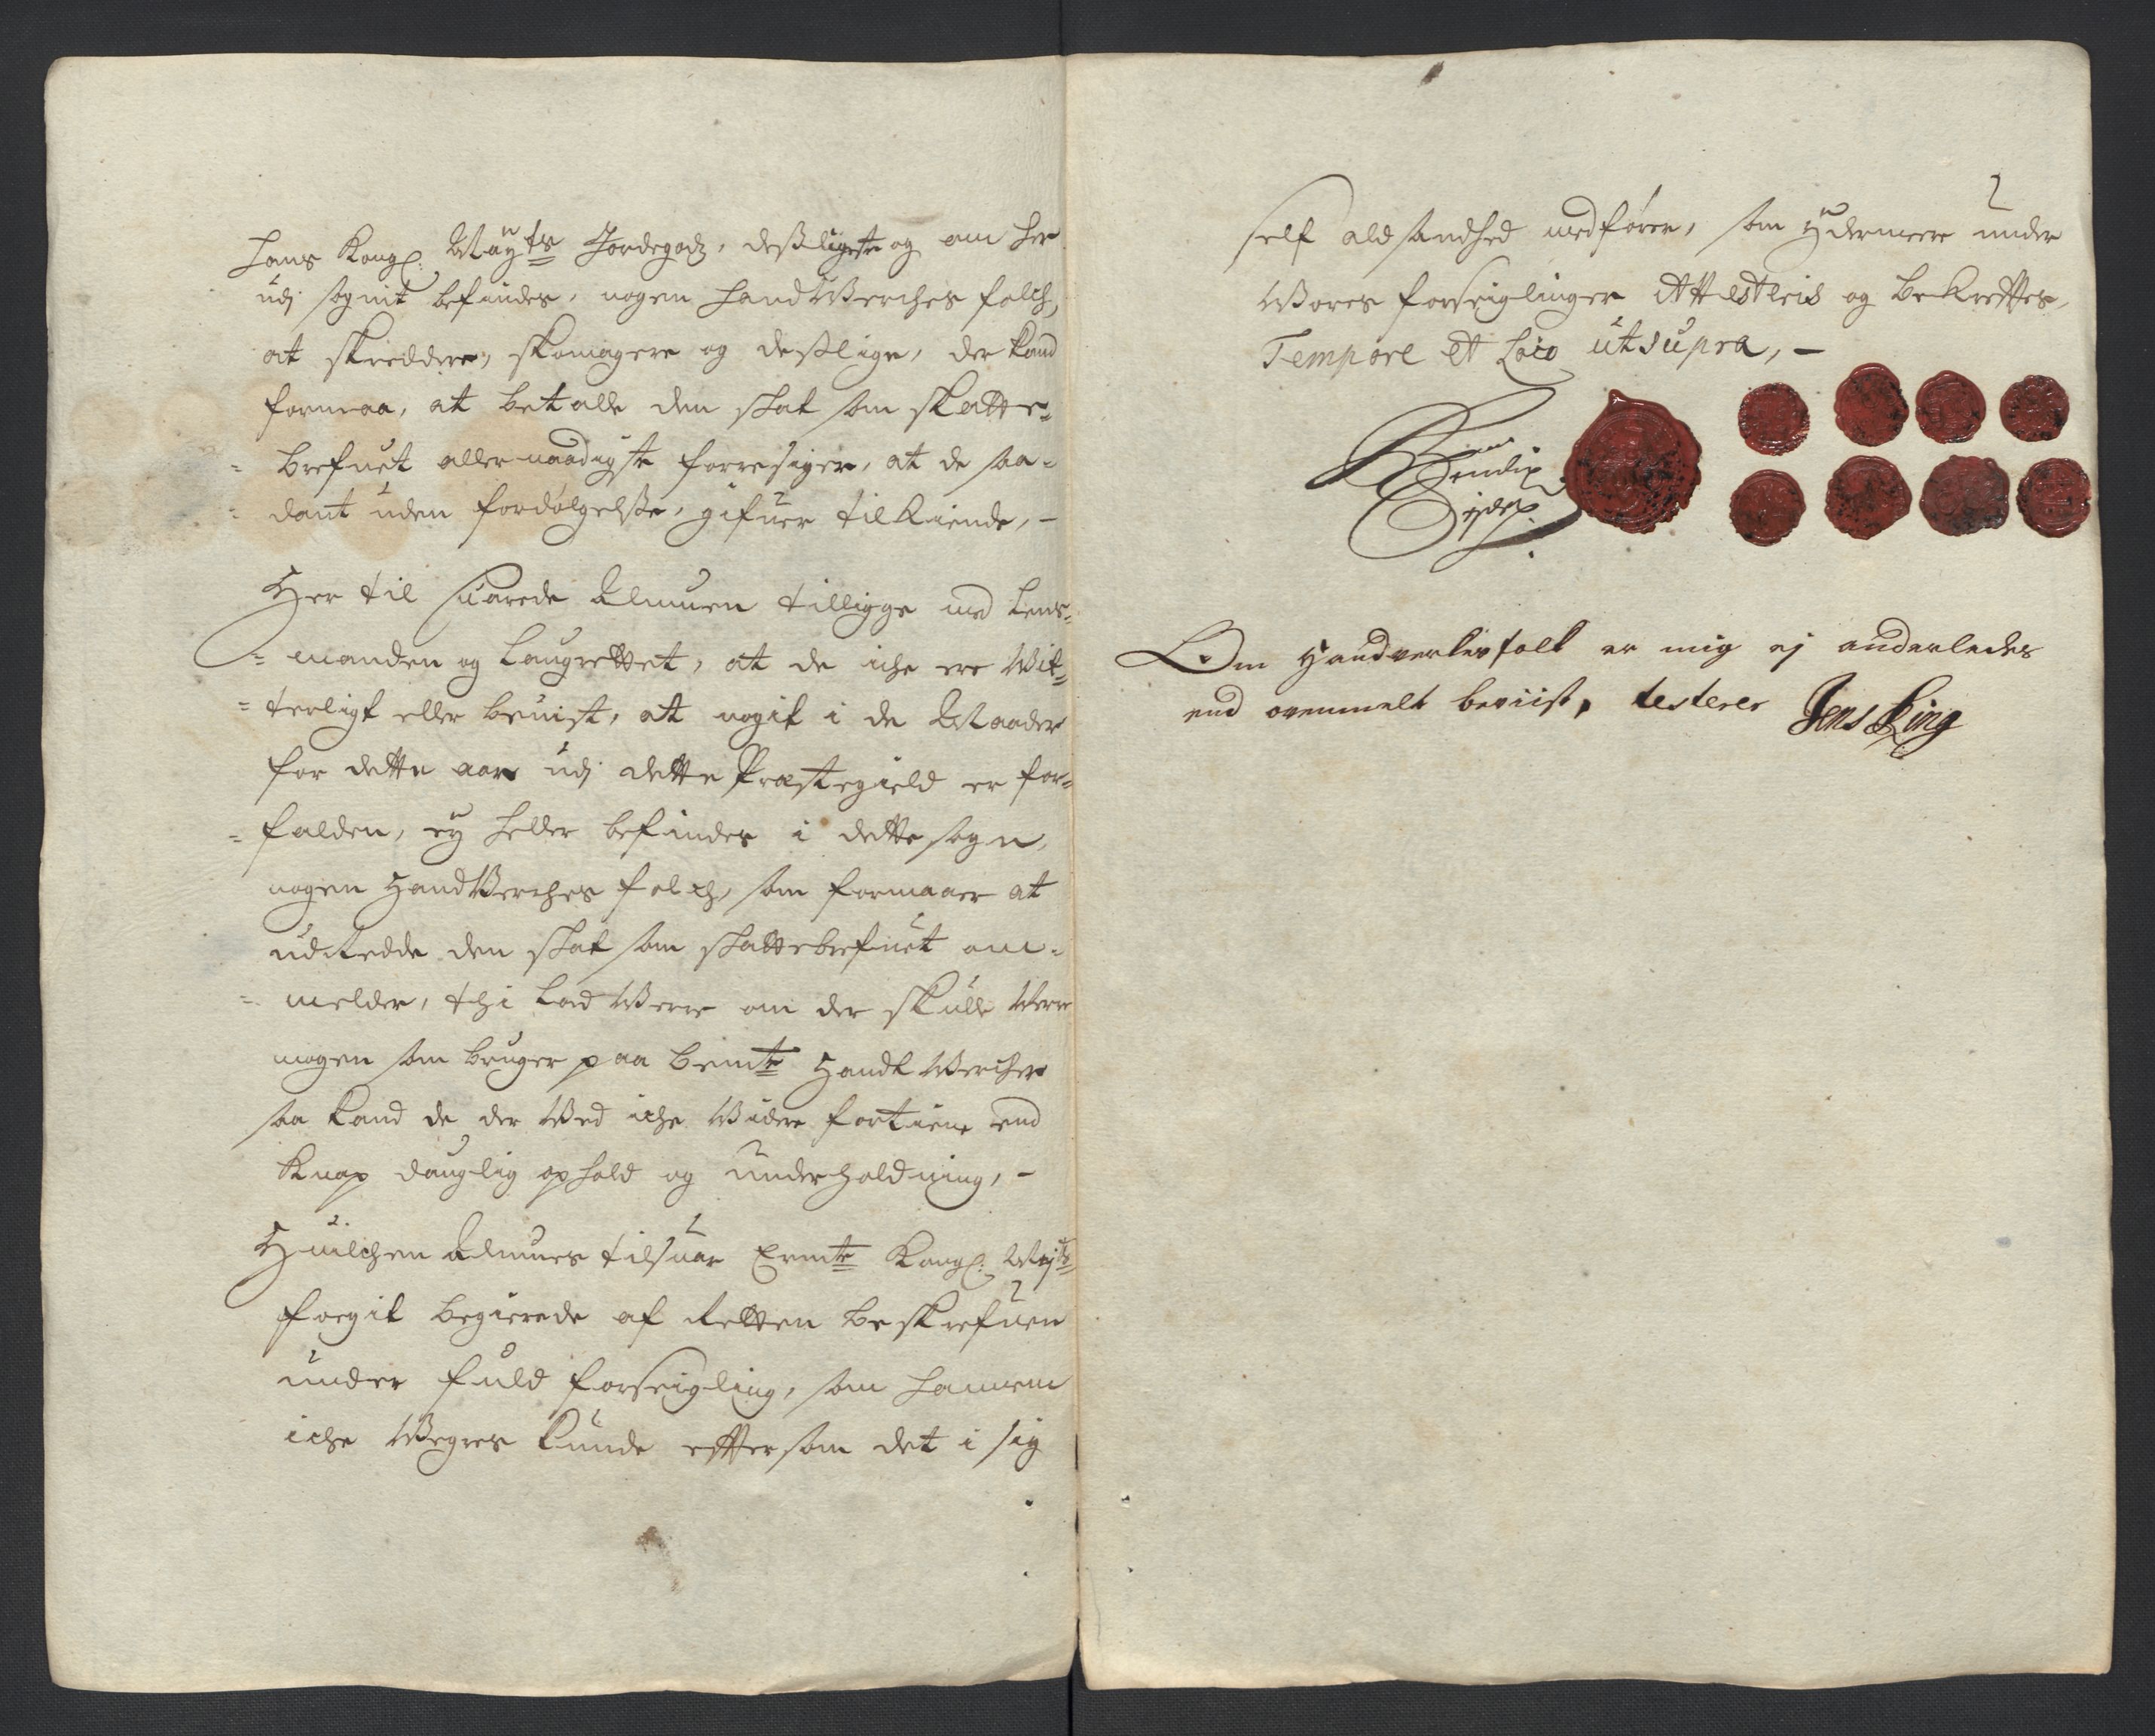 hans Kongl: Maÿts Jordegodz, desligeste og om her
udj sognit befindes, nogen HandWerches folch,
at skreddere, skomagere og deslige, der kand
formaa, at betalle den skat som skatte-
- brefuet allernaadigste forresiger, at de saa-
- dant uden fordølgelsse, gifuer tilkiende, -
Her til suarede Almuen tilligge med Lens-
- manden og Laugrettet, at de iche ere Wit-
- terligt eller beuist, at nogit i de Maader
for dette aar udj dette Præstegield er for-
- falden, eÿ heller befindes i dette sogn,
nogen HandWerches folch, som formaaer at
udRedde den skat som skattebrefuet om-
- melder, thi lad Werre om der skulle Werre
nogen som bruger paa bemte HandtWercher
saa kand de der Wed iche Widere fortiene end
Knap dauglig ophold og underholdning, -
Huilchen Almues tilsuar Ermte Kongl: Maÿts
foegit begierede af Retten beskrefuen
under fuld forseigling, som hannem
iche Wegres kunde effter som det i sig
self ald sandhed medfører, som Ÿdermeere under
Wores forseiglinger Attesteris og bekrefftes,
Tempore et Loco ut supra, -
Om Handverksfolk er mig ej anderledes
end ovenmelt beviist, testerer Jens Ring